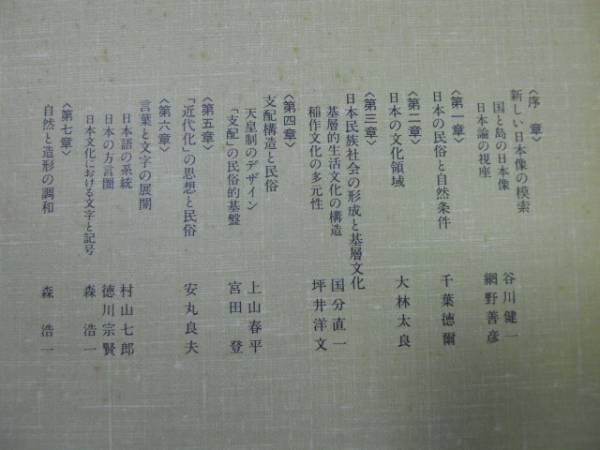 〈序　章〉
新しい日本像の模索
国と島の日本像　谷川健一
日本論の視座　網野善彦
〈第一章〉
日本の民俗と自然条件　千葉徳爾
〈第二章〉
日本の文化領域　大林太良
〈第三章〉
日本民族社会の形成と基層文化
基層的生活文化の構造　国分直一
稲作文化の多元性　坪井洋文
〈第四章〉
支配構造と民俗
天皇制のデザイン　上山春平
「支配」の民俗的基盤　宮田　登
〈第五章〉
「近代化」の思想と民俗　安丸良夫
〈第六章〉
言葉と文字の展開
日本語の系統　村山七郎
日本の方言圏　徳川宗賢
日本文化における文字と記号　森　浩一
〈第七章〉
自然と造形の調和　森　浩一